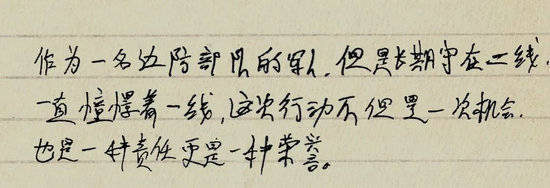 作为一名边防部队的军人,但是长期守在二线,
一直憧憬着一线,这次行动不但是一次机会.
也是一种责任更是一种荣誉。